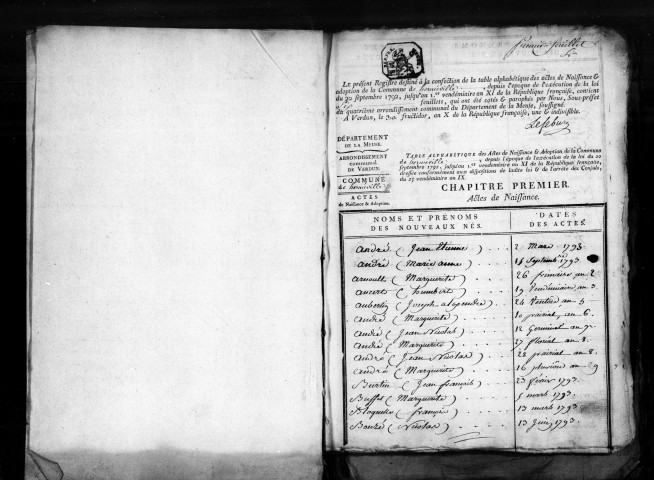 premier feuillet
Le présent Registre destiné à la confection de la table alphabétique des actes de Naissance &
adoption de la Commune de , depuis l'époque de l'exécution de la loi
du 20 septembre 1792, jusqu'au 1.er vendémiaire an XI de la République française, contient
feuillets, qui ont été cotés & paraphés par Nous, Sous-préfet
du quatrième arrondissement communal du Département de la Meuse, soussigné.
A Verdun, le 30 fructidor, an X de la République française, une & indivisible.
DÉPARTEMENT
DE LA MEUSE.
ARRONDISSEMENT
communal
DE VERDUN.
COMMUNE
de
ACTES
de Naissance & Adoption.
TABLE ALPHABÉTIQUE des Actes de Naissance & Adoption de la Commune
de , depuis l'époque de l'exécution de la loi du 20
septembre 1792, jusqu'au 1.er vendémiaire an XI de la République française,
dressée conformément aux dispositions de ladite loi & de l'arrêté des Consuls,
du 25 vendémiaire an IX.
CHAPITRE PREMIER.
Actes de Naissance.
NOMS ET PRÉNOMS
DES NOUVEAUX NÉS.
DATES
DES ACTES.
andré ( Jean Etienne ) 2 Mars 1793.
andré ( Marie anne ) Septembre 1793
arnoult ( Marguerite ) 26 frimaire an 2
( humbert ) 19 Vendémiaire an 3.
aubertin ( Joseph alexandre ) 24 Ventôse an 5
andré ( Marguerite ) 10 prairial an 6.
andré ( Jean Nicolas ) 12 Germinal an 7.
andré ( Marguerite ) 27 floréal an 8.
andré ( Jean Nicolas ) 28 prairial an 8.
andré ( Marguerite ) 16 pluviôse an 9
Burtin ( Jean françois ) 23 févier 1793.
( Marguerite ) 5 mars 1793
( françois ) 13 mars 1793
( Nicolas ) 13 Juin 1793.